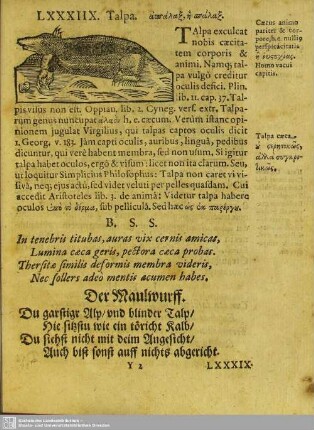 LXXXIIX. Talpa. ἀσπάλαξ, ἢ σπάλαξ.
TAlpa exculcat
nobis cæcita-
tem corporis &
animi. Namq; tal-
pa vulgò creditur
oculis defici. Plin.
lib. 11. cap. 37. Tal-
pis visus non est. Oppian. lib. 2. Cyneg. verf. extr. Talpa-
rum genus nuncupat h. e. cæcum. Verùm istanc opi-
nionem jugulat Virgilius, qui talpas captos oculis dicit
1. Georg. v. 183. Jam capti oculis, auribus, linguâ, pedibus
dicuntur, qui verè habent membra, sed non usum. Si igitur
talpa habet oculos, ergò & visum: licet non ita clarum. Seu,
ut loquitur Simplicius Philosophus: Talpa non caret vi vi-
sivâ, neq; ejus actu, sed videt veluti per pelles quasdam. Cui
accedit Aristoteles lib. 3. de animâ: Videtur talpa habere
oculos ὑπὸ τὸ δέρμα, sub pelliculâ. Sed hæc ὡς ἐν παρέργῳ.
Cæcus animo
pariter & cor-
pore, h. e. nullius
perspicacitatis
Homo vacui
capitis.
Talpa cæca,
B. S. S.
In tenebris titubas, auras vix cernis amicas,
Lumina cæca geris, pectora cæca probas.
Thersitæ similis deformis membra videris,
Nec sollers adeò mentis acumen habes.
Der Maulwurff.
Du garstige Alp/ vnd blinder Talp/
Hie sitzstu wie ein töricht Kalb/
Du siehst nicht mit deim Angesicht/
Auch bist sonst auff nichts abgericht.
Y 2
LXXXIX.